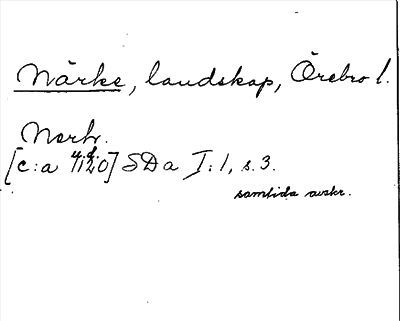 Närke, landskap, Örebro l.
Nerk.
u.d.
[c:a 1120] SDa I:1, s. 3.
samtida avskr.